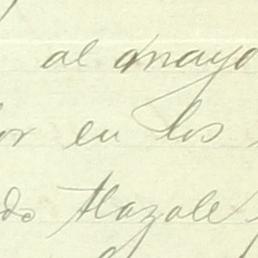 al mayo
or en los
do Tlazale